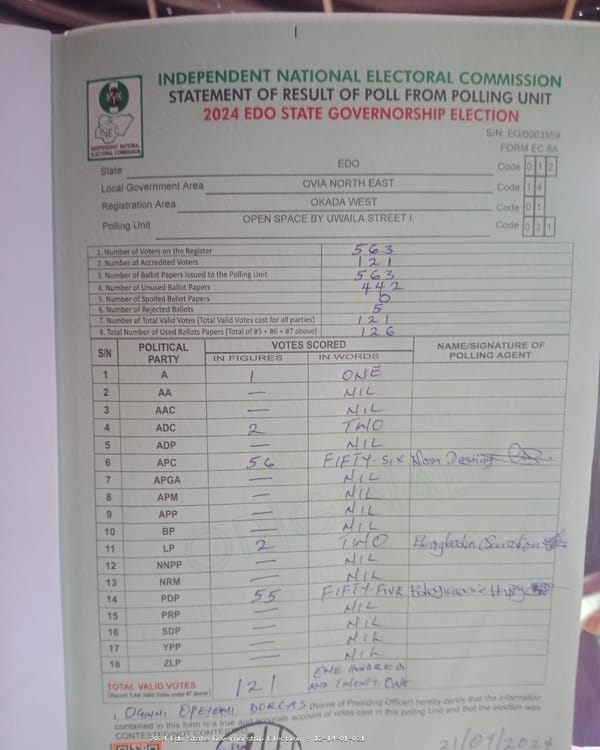 INDEPENDENT NATIONAL ELECTORAL COMMISSION
STATEMENT OF RESULT OF POLL FROM POLLING UNIT
2024 EDO STATE GOVERNORSHIP ELECTION
S/N: EG/0003559
FORM EC 8A
INDEPENDENT NATIONAL ELECTORAL COMMISSION
State EDO Code 0 1 2
Local Government Area OVIA NORTH EAST Code 1 4
Registration Area OKADA WEST Code 0 1
Polling Unit OPEN SPACE BY UWAILA STREET I Code 0 2 1
1. Number of Voters on the Register 563
2. Number of Accredited Voters 121
3. Number of Ballot Papers Issued to the Polling Unit 563
4. Number of Unused Ballot Papers 442
5. Number of Spoiled Ballot Papers 0
6. Number of Rejected Ballots 5
7. Number of Total Valid Votes (Total Valid Votes cast for all parties) 121
8. Total Number of Used Ballots Papers (Total of #5 + #6 + #7 above) 126
S/N POLITICAL PARTY VOTES SCORED NAME/SIGNATURE OF POLLING AGENT
IN FIGURES IN WORDS
1 A 1 ONE
2 AA — NIL
3 AAC — NIL
4 ADC 2 TWO
5 ADP — NIL
6 APC 56 FIFTY-SIX
7 APGA — NIL
8 APM — NIL
9 APP — NIL
10 BP — NIL
11 LP 2 TWO
12 NNPP — NIL
13 NRM — NIL
14 PDP 55 FIFTY-FIVE
15 PRP — NIL
16 SDP — NIL
17 YPP — NIL
18 ZLP — NIL
TOTAL VALID VOTES 121 ONE HUNDRED AND TWENTY-ONE
(Record Total Valid Votes under #7 above)
I, OGINNI OPEYEMI DORCAS (Name of Presiding Officer) hereby certify that the information
contained in this form is a true and accurate account of votes cast in this polling Unit and that the election was
CONTESTED/NOT CONTE
21/09/2024
2024 Edo State Governorship Election - 12-14-01-021